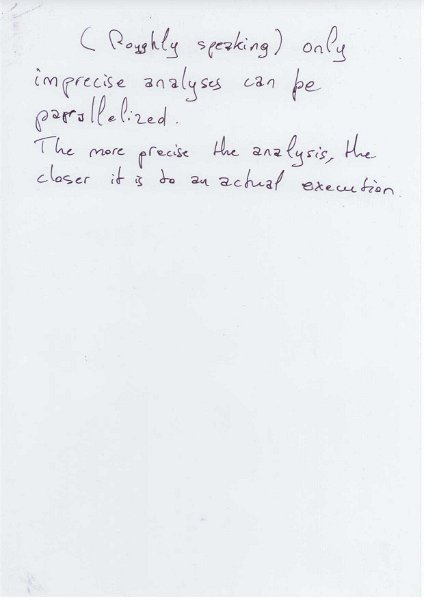 (Roughly speaking) only
imprecise analyses can be
parallelized.
The more precise the analysis, the
closer it is to an actual execution.